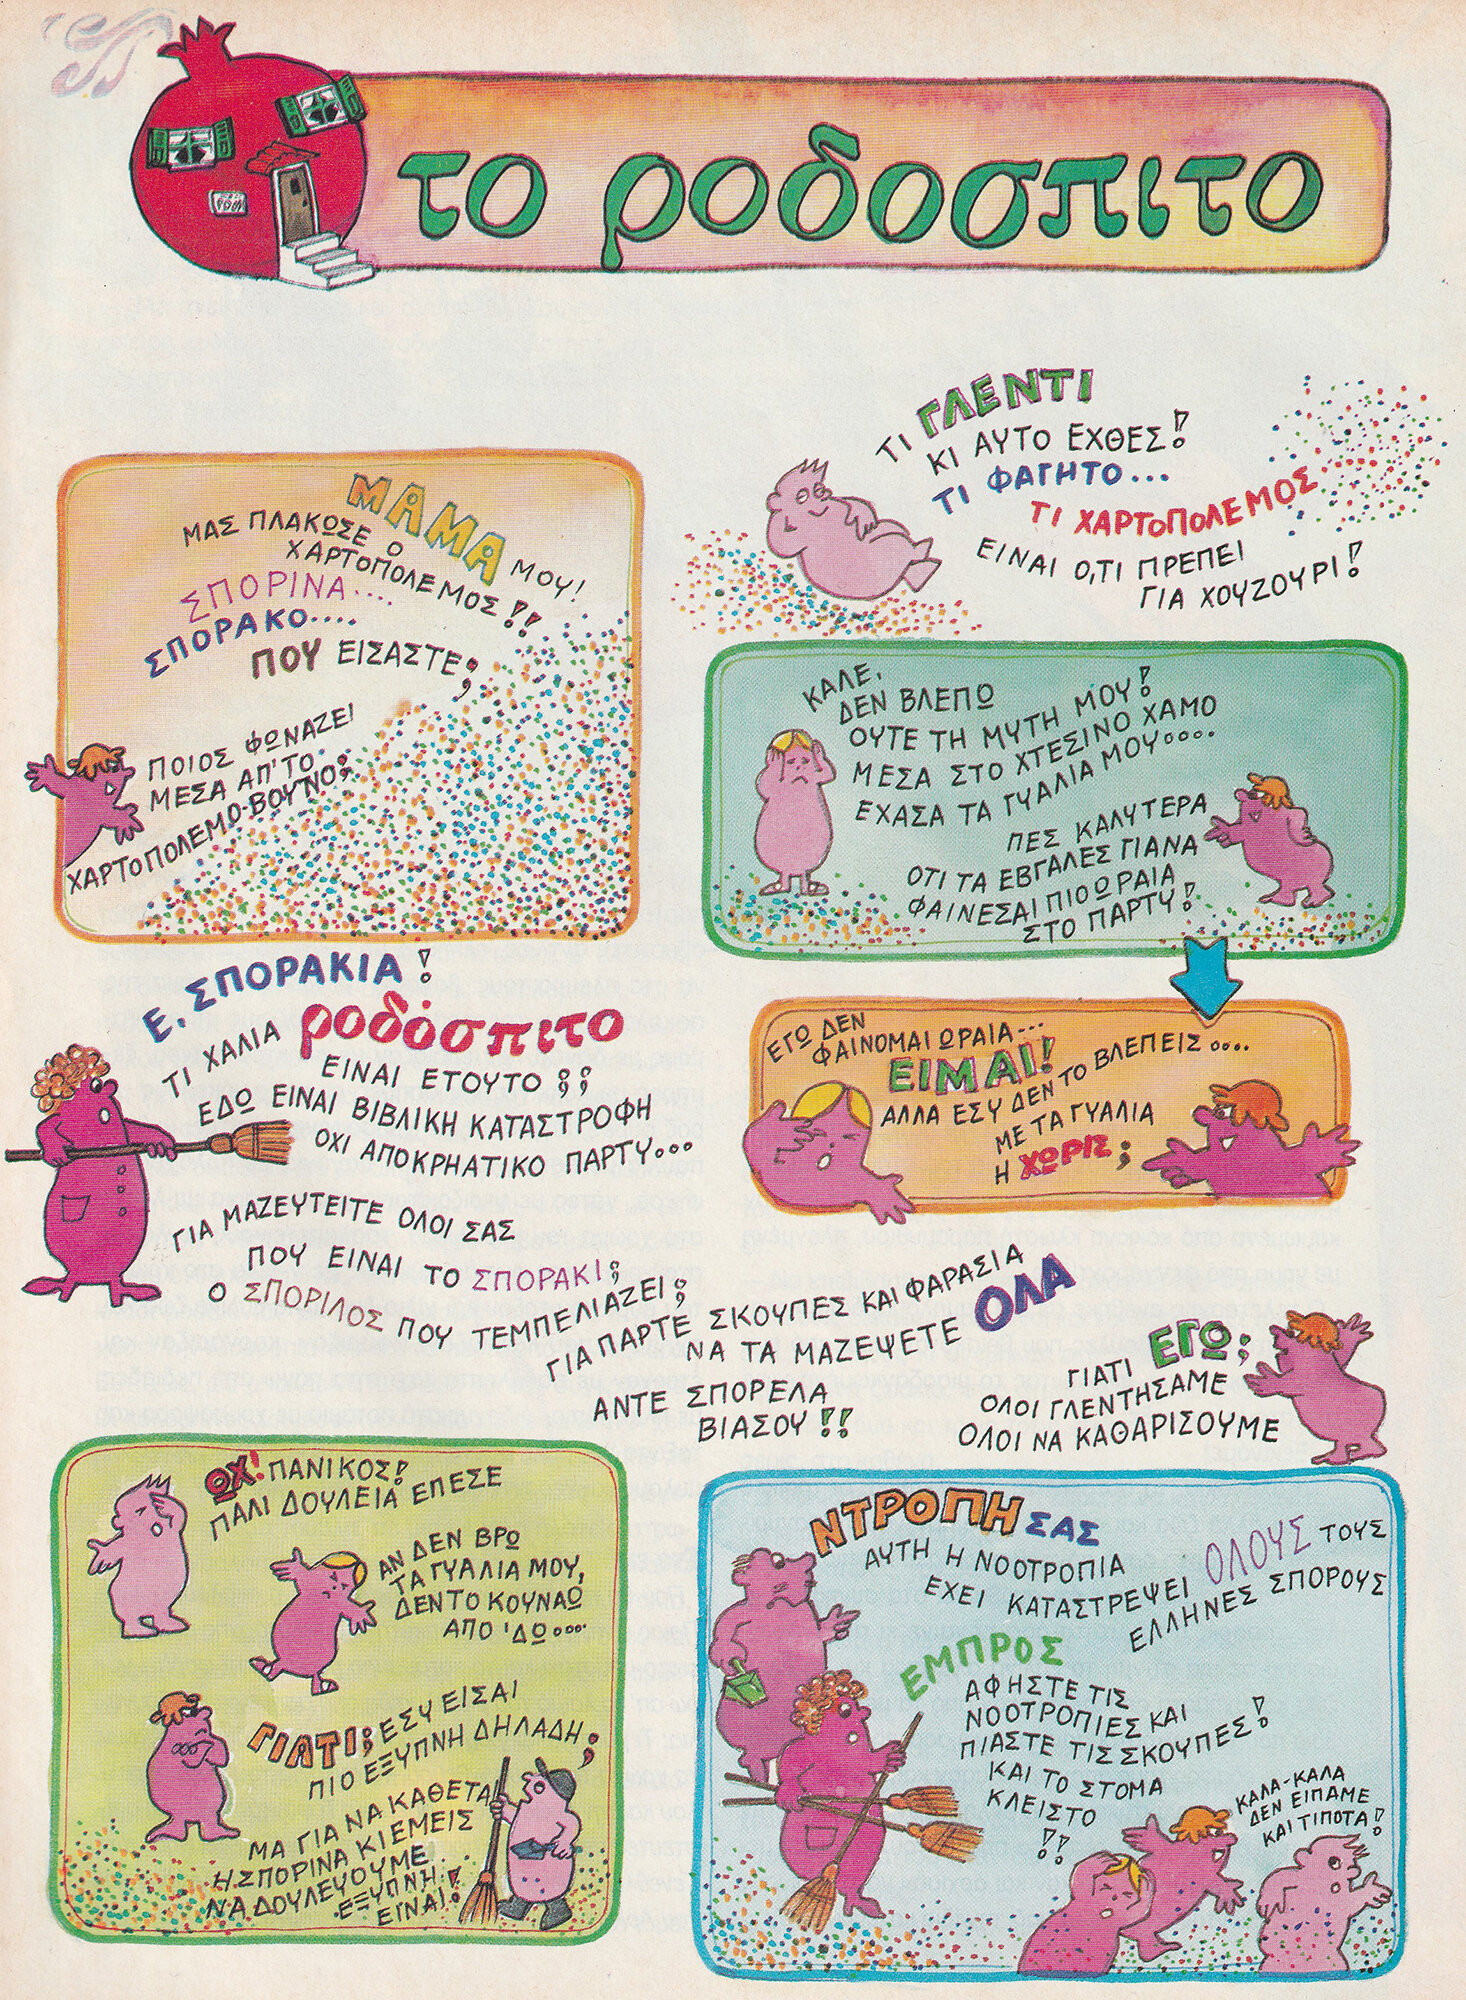 το ροδοσπιτο
ΜΑΜΑ ΜΟΥ!
ΜΑΣ ΠΛΑΚΩΣΕ Ο
ΧΑΡΤΟΠΟΛΕΜΟΣ!!
ΣΠΟΡΙΝΑ....
ΣΠΟΡΑΚΟ....
ΠΟΥ ΕΙΣΑΣΤΕ;
ΠΟΙΟΣ ΦΩΝΑΖΕΙ
ΜΕΣΑ ΑΠ'ΤΟ
ΧΑΡΤΟΠΟΛΕΜΟ-ΒΟΥΝΟ;
ΤΙ ΓΛΕΝΤΙ
ΚΙ ΑΥΤΟ ΕΧΘΕΣ!
ΤΙ ΦΑΓΗΤΟ...
ΤΙ ΧΑΡΤΟΠΟΛΕΜΟΣ
ΕΙΝΑΙ Ο,ΤΙ ΠΡΕΠΕΙ
ΓΙΑ ΧΟΥΖΟΥΡΙ!
ΚΑΛΕ,
ΔΕΝ ΒΛΕΠΩ
ΟΥΤΕ ΤΗ ΜΥΤΗ ΜΟΥ!
ΜΕΣΑ ΣΤΟ ΧΤΕΣΙΝΟ ΧΑΜΟ
ΕΧΑΣΑ ΤΑ ΓΥΑΛΙΑ ΜΟΥ....
ΠΕΣ ΚΑΛΥΤΕΡΑ
ΟΤΙ ΤΑ ΕΒΓΑΛΕΣ ΓΙΑΝΑ
ΦΑΙΝΕΣΑΙ ΠΙΟ ΩΡΑΙΑ
ΣΤΟ ΠΑΡΤΥ!
ΕΓΩ ΔΕΝ
ΦΑΙΝΟΜΑΙ ΩΡΑΙΑ...
ΕΙΜΑΙ!
ΑΛΛΑ ΕΣΥ ΔΕΝ ΤΟ ΒΛΕΠΕΙΣ....
ΜΕ ΤΑ ΓΥΑΛΙΑ
Η ΧΩΡΙΣ;
Ε, ΣΠΟΡΑΚΙΑ!
ΤΙ ΧΑΛΙΑ ροδόσπιτο
ΕΙΝΑΙ ΕΤΟΥΤΟ;;
ΕΔΩ ΕΙΝΑΙ ΒΙΒΛΙΚΗ ΚΑΤΑΣΤΡΟΦΗ
ΟΧΙ ΑΠΟΚΡΗΑΤΙΚΟ ΠΑΡΤΥ...
ΓΙΑ ΜΑΖΕΥΤΕΙΤΕ ΟΛΟΙ ΣΑΣ
ΠΟΥ ΕΙΝΑΙ ΤΟ ΣΠΟΡΑΚΙ;
Ο ΣΠΟΡΙΛΟΣ ΠΟΥ ΤΕΜΠΕΛΙΑΖΕΙ;
ΓΙΑ ΠΑΡΤΕ ΣΚΟΥΠΕΣ ΚΑΙ ΦΑΡΑΣΙΑ
ΝΑ ΤΑ ΜΑΖΕΨΕΤΕ ΟΛΑ
ΑΝΤΕ ΣΠΟΡΕΛΑ
ΒΙΑΣΟΥ!!
ΓΙΑΤΙ ΕΓΩ;
ΟΛΟΙ ΓΛΕΝΤΗΣΑΜΕ
ΟΛΟΙ ΝΑ ΚΑΘΑΡΙΣΟΥΜΕ
ΩΧ! ΠΑΝΙΚΟΣ!
ΠΑΛΙ ΔΟΥΛΕΙΑ ΕΠΕΣΕ
ΑΝ ΔΕΝ ΒΡΩ
ΤΑ ΓΥΑΛΙΑ ΜΟΥ,
ΔΕΝ ΤΟ ΚΟΥΝΑΩ
ΑΠΟ 'ΔΩ....
ΓΙΑΤΙ; ΕΣΥ ΕΙΣΑΙ
ΠΙΟ ΕΞΥΠΝΗ ΔΗΛΑΔΗ;
ΜΑ ΓΙΑ ΝΑ ΚΑΘΕΤΑΙ
Η ΣΠΟΡΙΝΑ ΚΙ ΕΜΕΙΣ
ΝΑ ΔΟΥΛΕΨΟΥΜΕ
ΕΞΥΠΝΗ
ΕΙΝΑΙ!
ΝΤΡΟΠΗ ΣΑΣ
ΑΥΤΗ Η ΝΟΟΤΡΟΠΙΑ
ΕΧΕΙ ΚΑΤΑΣΤΡΕΨΕΙ ΟΛΟΥΣ ΤΟΥΣ
ΕΛΛΗΝΕΣ ΣΠΟΡΟΥΣ
ΕΜΠΡΟΣ
ΑΦΗΣΤΕ ΤΙΣ
ΝΟΟΤΡΟΠΙΕΣ ΚΑΙ
ΠΙΑΣΤΕ ΤΙΣ ΣΚΟΥΠΕΣ!
ΚΑΙ ΤΟ ΣΤΟΜΑ
ΚΛΕΙΣΤΟ
!!
ΚΑΛΑ-ΚΑΛΑ
ΔΕΝ ΕΙΠΑΜΕ
ΚΑΙ ΤΙΠΟΤΑ!